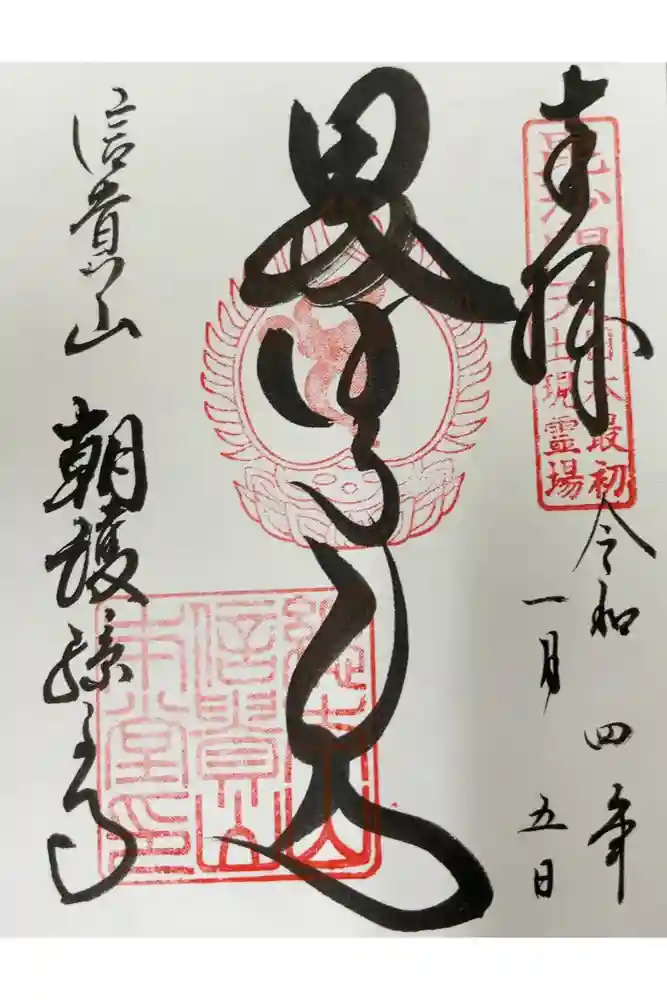 奉拝
毘沙門天
日本最初
出現靈場
令和四年
一月五日
毘沙門天
信貴山 朝護孫子寺
總本山
信貴山
本堂印